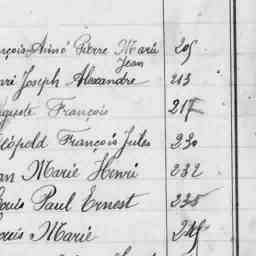 nçois Aimé Pierre Marie 205
Jean
ari Joseph Alexandre 213
uguste François 217
éopold François Jules 230
an Marie Henri 232
ouis Paul Ernest 235
ouis Marie 245